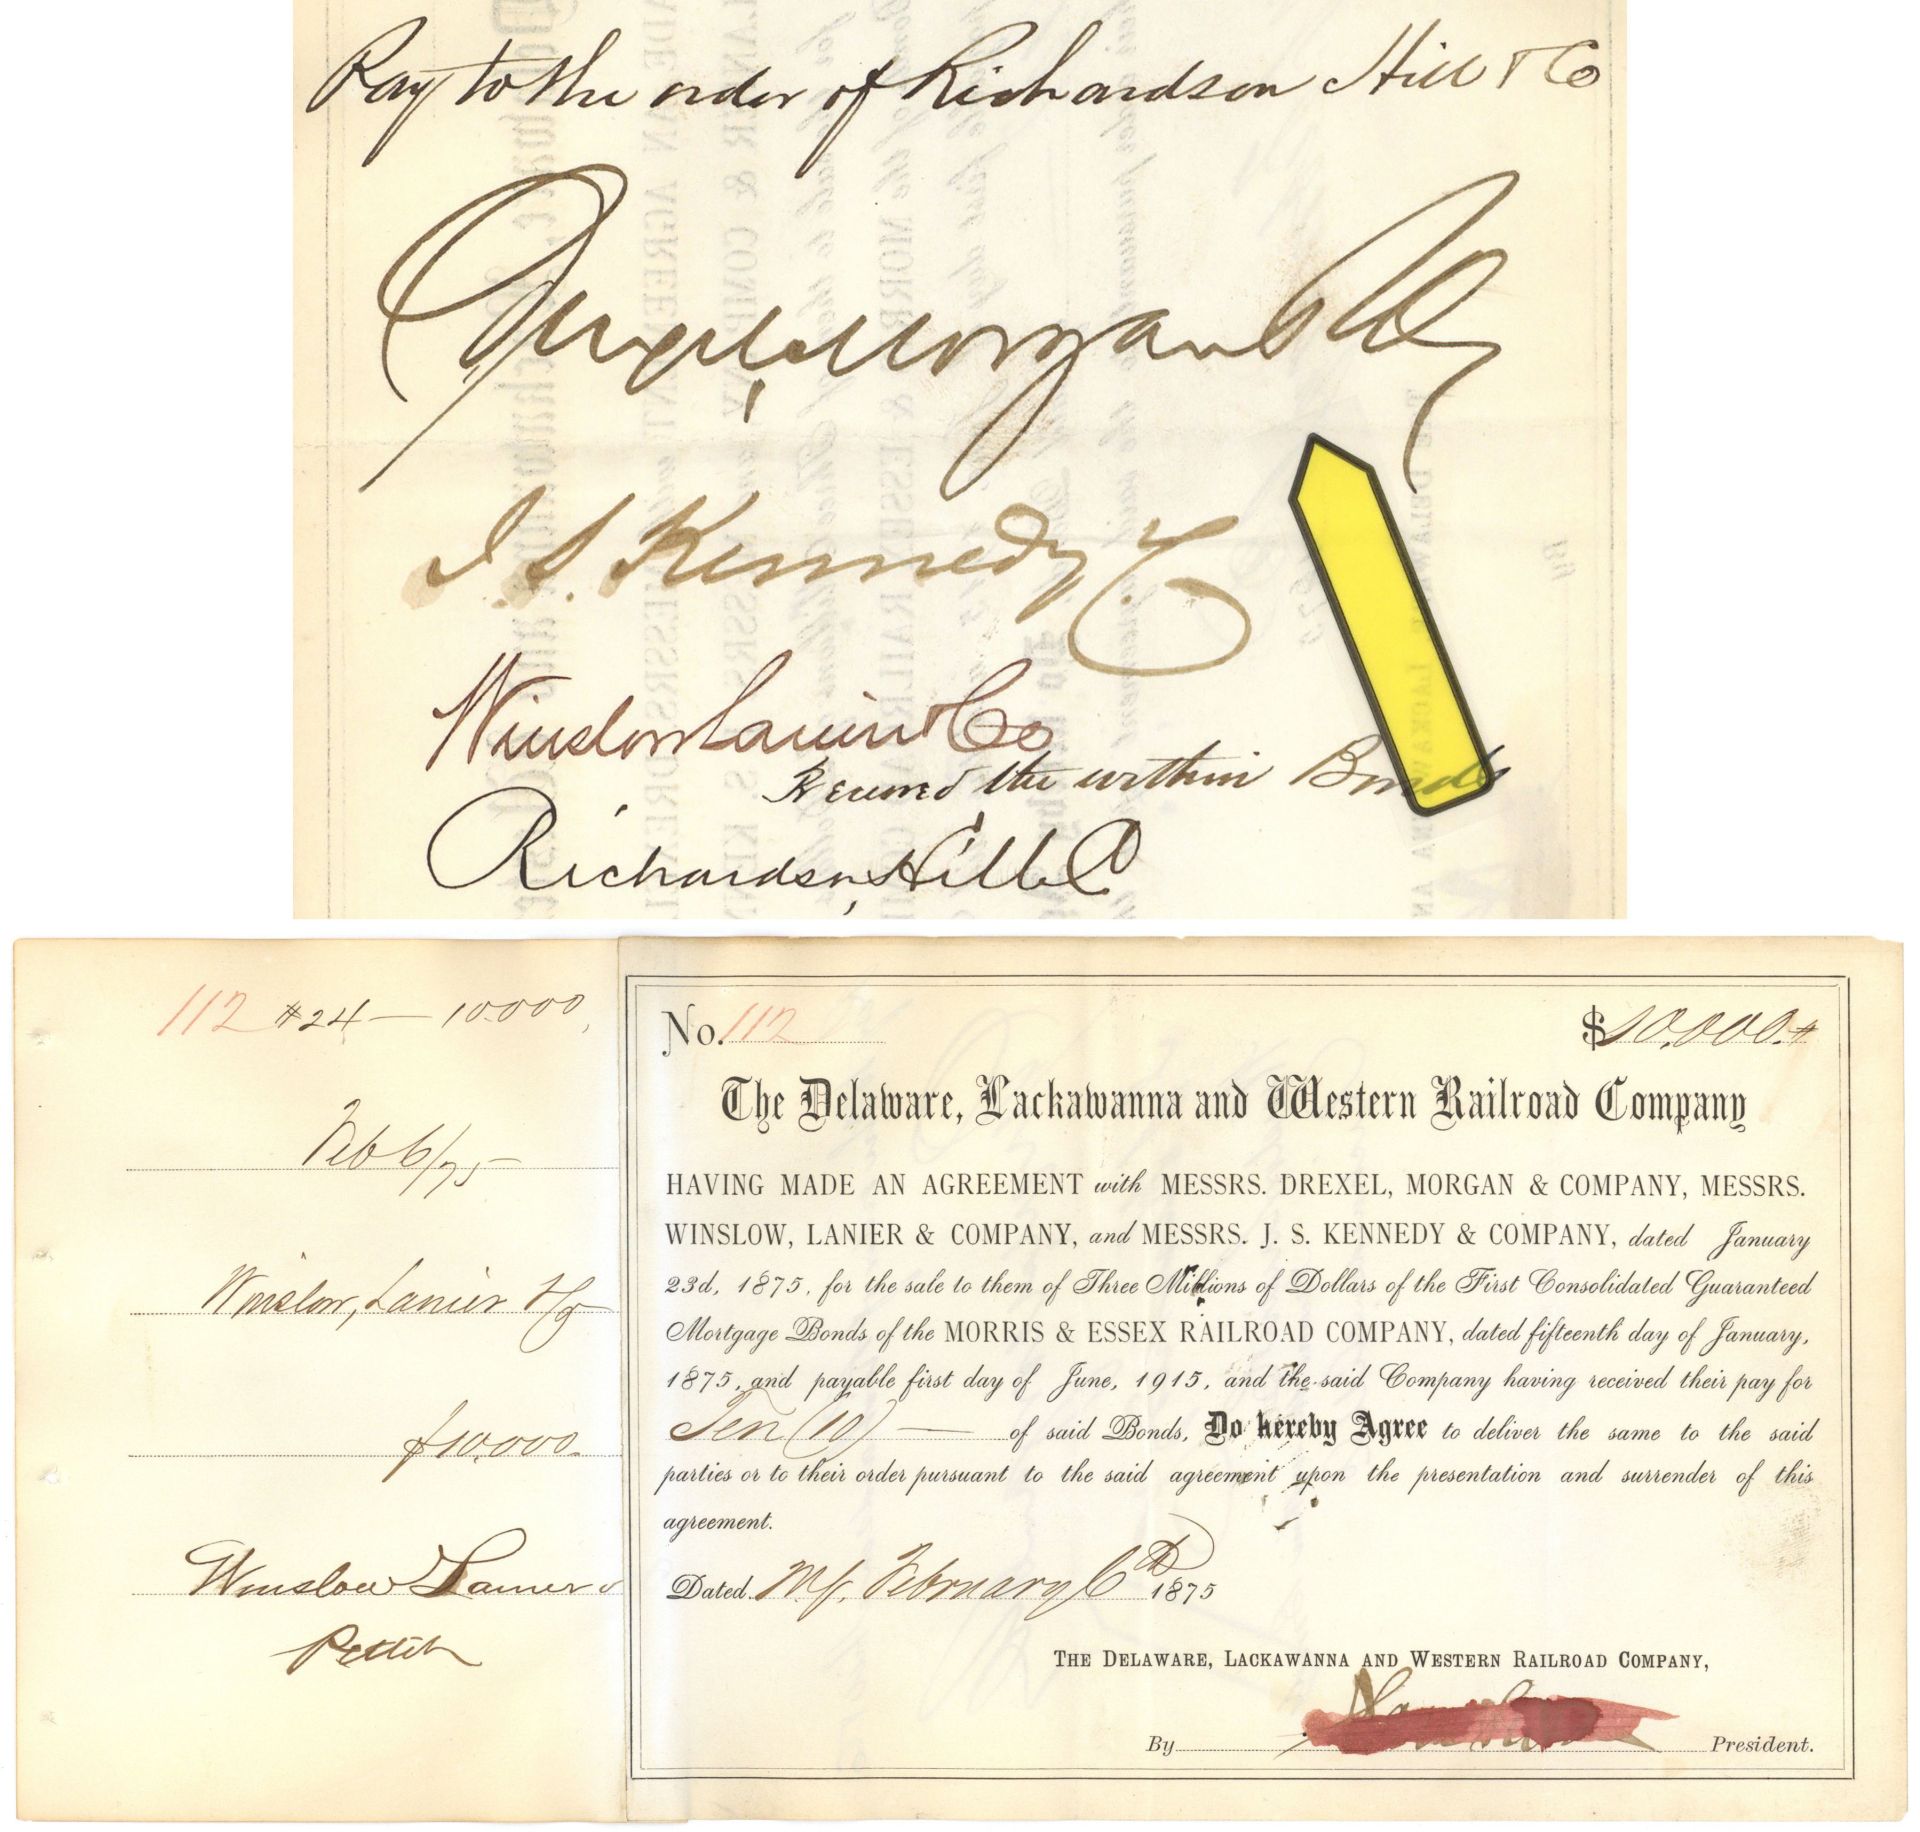 Pay to the order of Richardson Hill & Co
Drexel, Morgan & Co
J. S. Kennedy & Co
Winslow Lanier & Co
Received the within Bonds
Richardson, Hill & Co
112 #24 — 10.000,
Feb 6/75
Winslow, Lanier & Co
$10.000.
Winslow Lanier &
No. 112
$10,000.#
The Delaware, Lackawanna and Western Railroad Company
HAVING MADE AN AGREEMENT with MESSRS. DREXEL, MORGAN & COMPANY, MESSRS.
WINSLOW, LANIER & COMPANY, and MESSRS. J. S. KENNEDY & COMPANY, dated January
23d, 1875, for the sale to them of Three Millions of Dollars of the First Consolidated Guaranteed
Mortgage Bonds of the MORRIS & ESSEX RAILROAD COMPANY, dated fifteenth day of January,
1875, and payable first day of June, 1915, and the said Company having received their pay for
Ten (10) — of said Bonds, Do hereby Agree to deliver the same to the said
parties or to their order pursuant to the said agreement upon the presentation and surrender of this
agreement.
Dated N.Y. February 6th 1875
THE DELAWARE, LACKAWANNA AND WESTERN RAILROAD COMPANY,
By President.